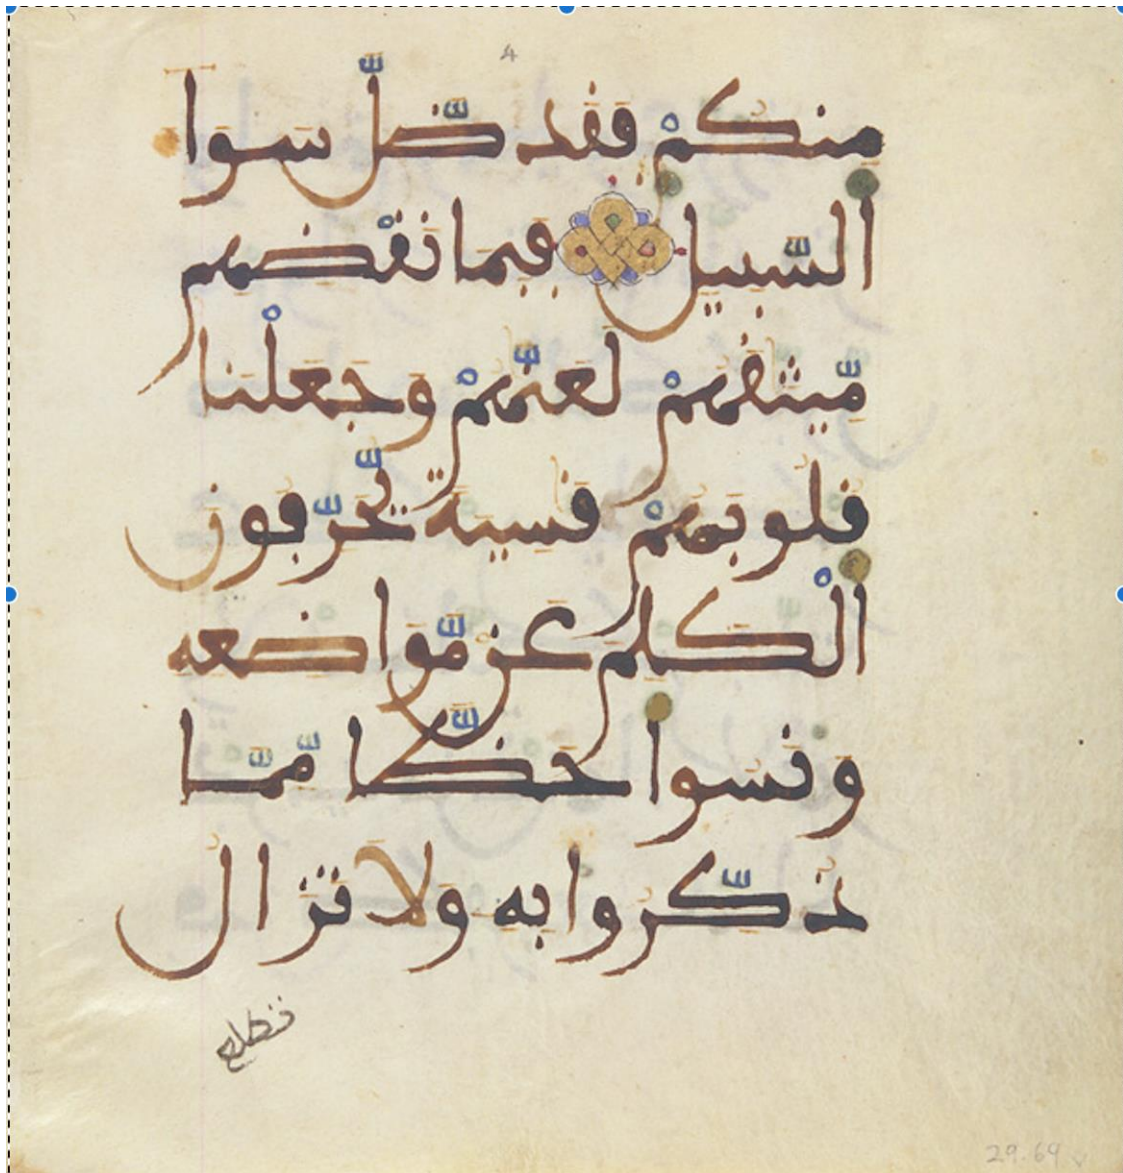 4
مِنكُمْ فَقَد ضَّلَّ سَوَا
السَّبِيلِ فَبِمَا نَقْضِهِم
مِّيثَٰقَهُمْ لَعَنَّٰهُمْ وَجَعَلْنَا
قُلُوبَهُمْ قَٰسِيَةً يُحَرِّفُونَ
الْكَلِمَ عَن مَّوَاضِعِهِ
وَنَسُوا حَظًّا مِّمَّا
ذُكِّرُوا بِهِ وَلَا تَزَالُ
تطلع
29.64 v